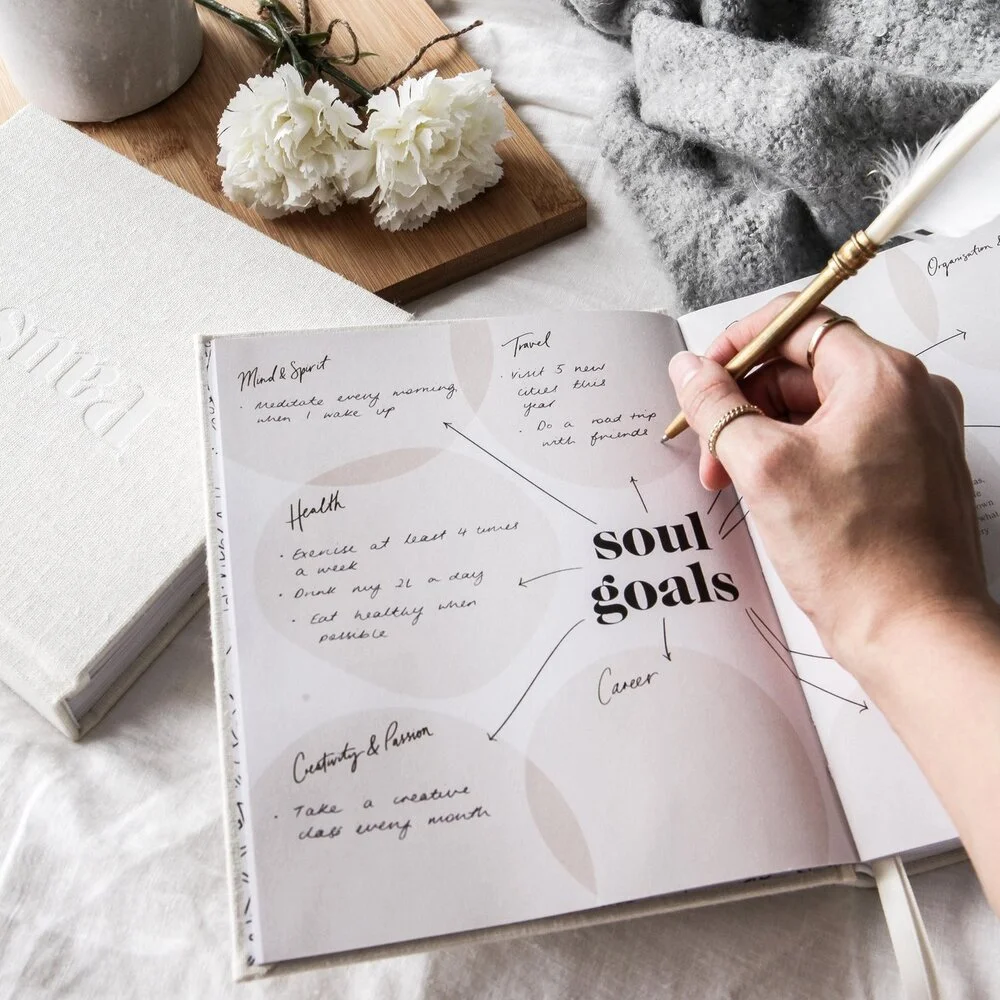 Mind & Spirit
• Meditate every morning
when I wake up
Travel
• Visit 5 new
cities this
year
• Do a road trip
with friends
Organisation &
Health
• Exercise at least 4 times
a week
• Drink my 2L a day
• Eat healthy when
possible
soul
goals
Creativity & Passion
• Take a creative
class every month
Career